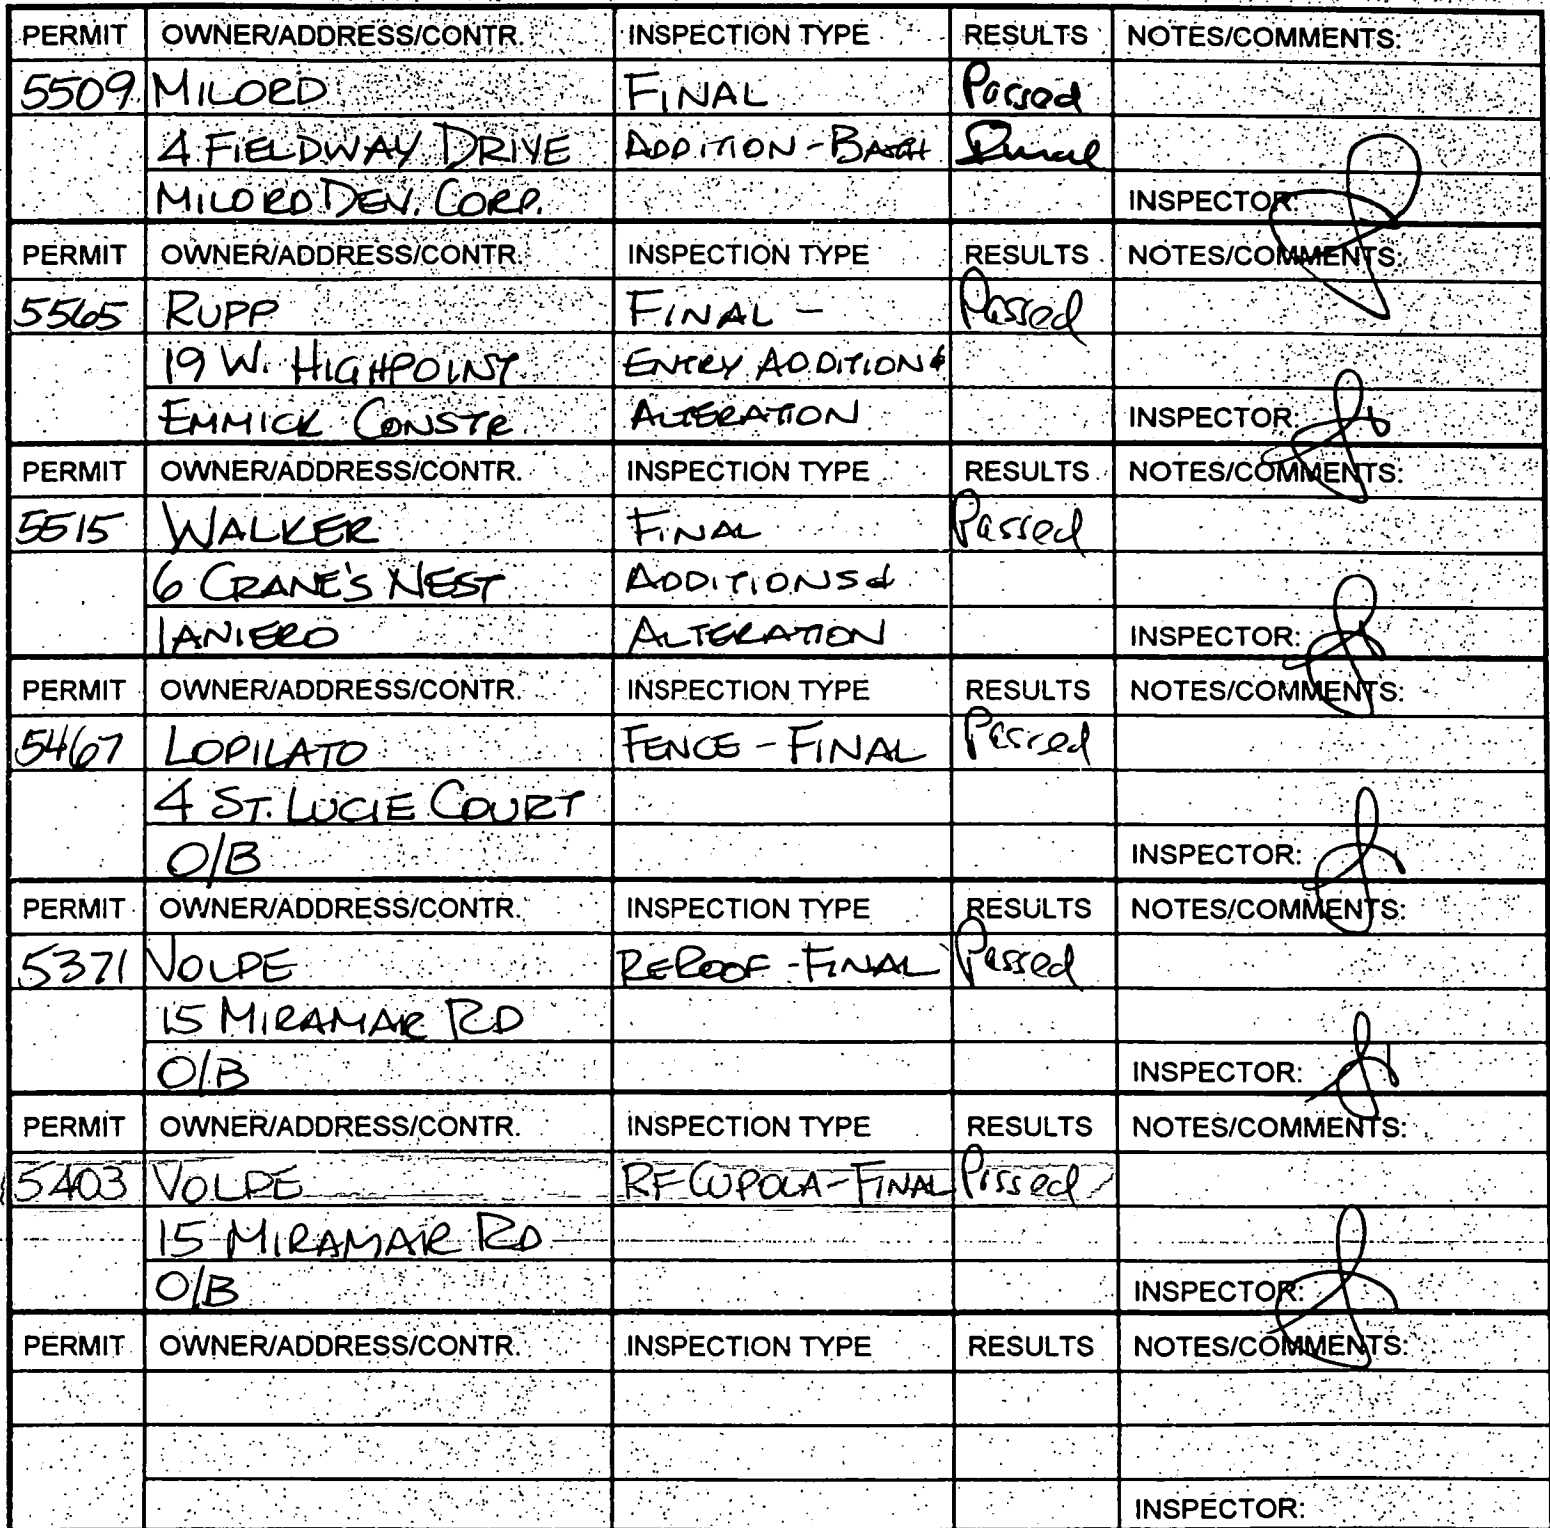 PERMIT OWNER/ADDRESS/CONTR. INSPECTION TYPE RESULTS NOTES/COMMENTS:
5509 MILORD FINAL Passed
4 FIELDWAY DRIVE ADDITION - BATH
MILORD DEV. CORP. INSPECTOR:
PERMIT OWNER/ADDRESS/CONTR. INSPECTION TYPE RESULTS NOTES/COMMENTS:
5565 RUPP FINAL - Passed
19 W. HIGHPOINT ENTRY ADDITION &
EMMICK CONSTR ALTERATION INSPECTOR:
PERMIT OWNER/ADDRESS/CONTR. INSPECTION TYPE RESULTS NOTES/COMMENTS:
5515 WALKER FINAL Passed
6 CRANE'S NEST ADDITIONS &
IANIERO ALTERATION INSPECTOR:
PERMIT OWNER/ADDRESS/CONTR. INSPECTION TYPE RESULTS NOTES/COMMENTS:
5467 LOPILATO FENCE - FINAL Passed
4 ST. LUCIE COURT
O/B INSPECTOR:
PERMIT OWNER/ADDRESS/CONTR. INSPECTION TYPE RESULTS NOTES/COMMENTS:
5371 VOLPE REROOF - FINAL Passed
15 MIRAMAR RD
O/B INSPECTOR:
PERMIT OWNER/ADDRESS/CONTR. INSPECTION TYPE RESULTS NOTES/COMMENTS:
5403 VOLPE RF CUPOLA - FINAL Passed
15 MIRAMAR RD
O/B INSPECTOR:
PERMIT OWNER/ADDRESS/CONTR. INSPECTION TYPE RESULTS NOTES/COMMENTS:
INSPECTOR: